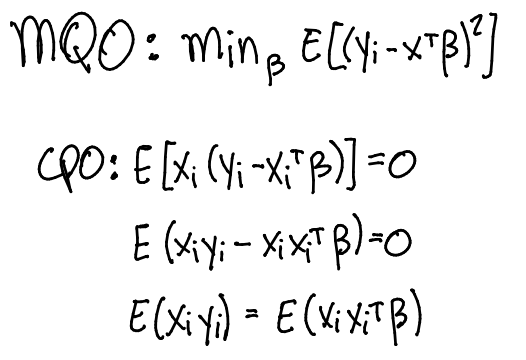 MQO: min_β E[(y_i - x^T β)^2]
CPO: E[x_i (y_i - x_i^T β)] = 0
E (x_i y_i - x_i x_i^T β) = 0
E(x_i y_i) = E(x_i x_i^T β)